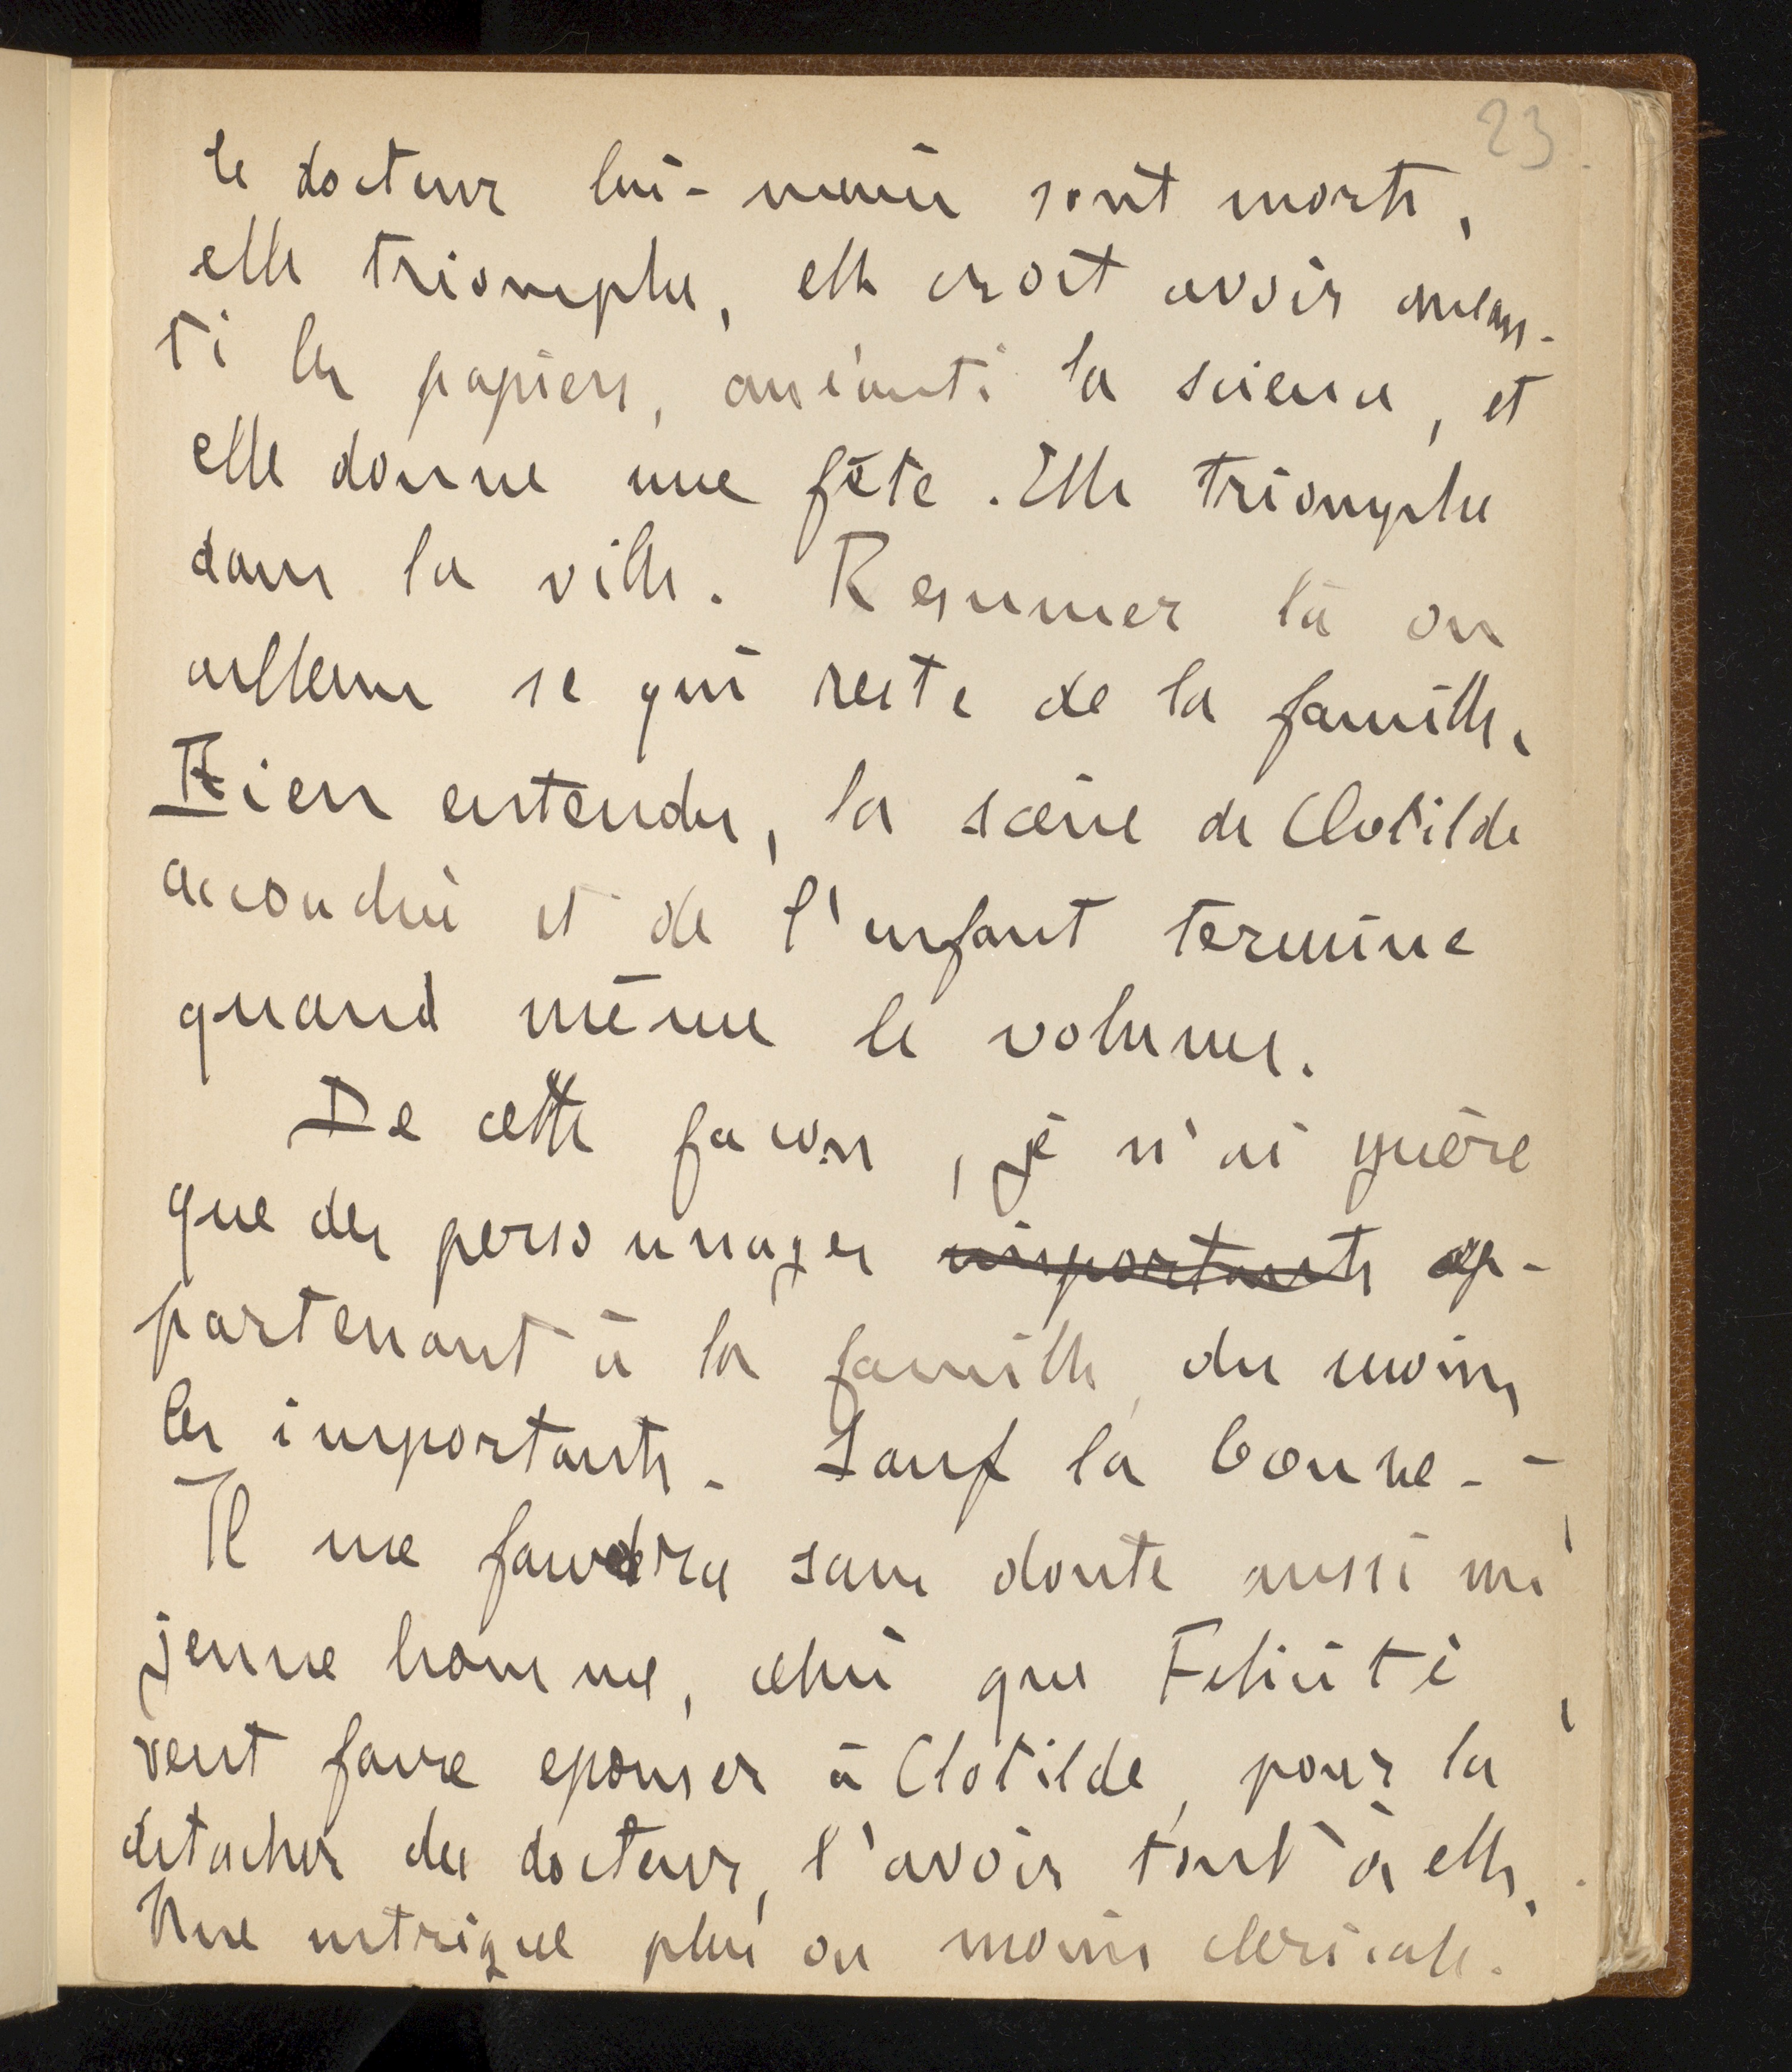 23
le docteur lui-même sont morts,
elle triomphe, elle croit avoir anéan-
ti les papiers, anéanti la science, et
elle donne une fête. Elle triomphe
dans la ville. Resumer là ou
ailleurs se qui reste de la famille.
Bien entendu, la scène de Clotilde
accouchée et de l'enfant termine
quand même le volume.
De cette façon, je n'ai guère
que des personnages importants ap-
partenant à la famille, du moins
les importants. Sauf la bonne. -
Il me faudra sans doute aussi un
jeune homme, celui que Félicité
veut faire epouser à Clotilde, pour la
détacher du docteur, l'avoir tout à elle.
Une intrigue plus ou moins clericale.